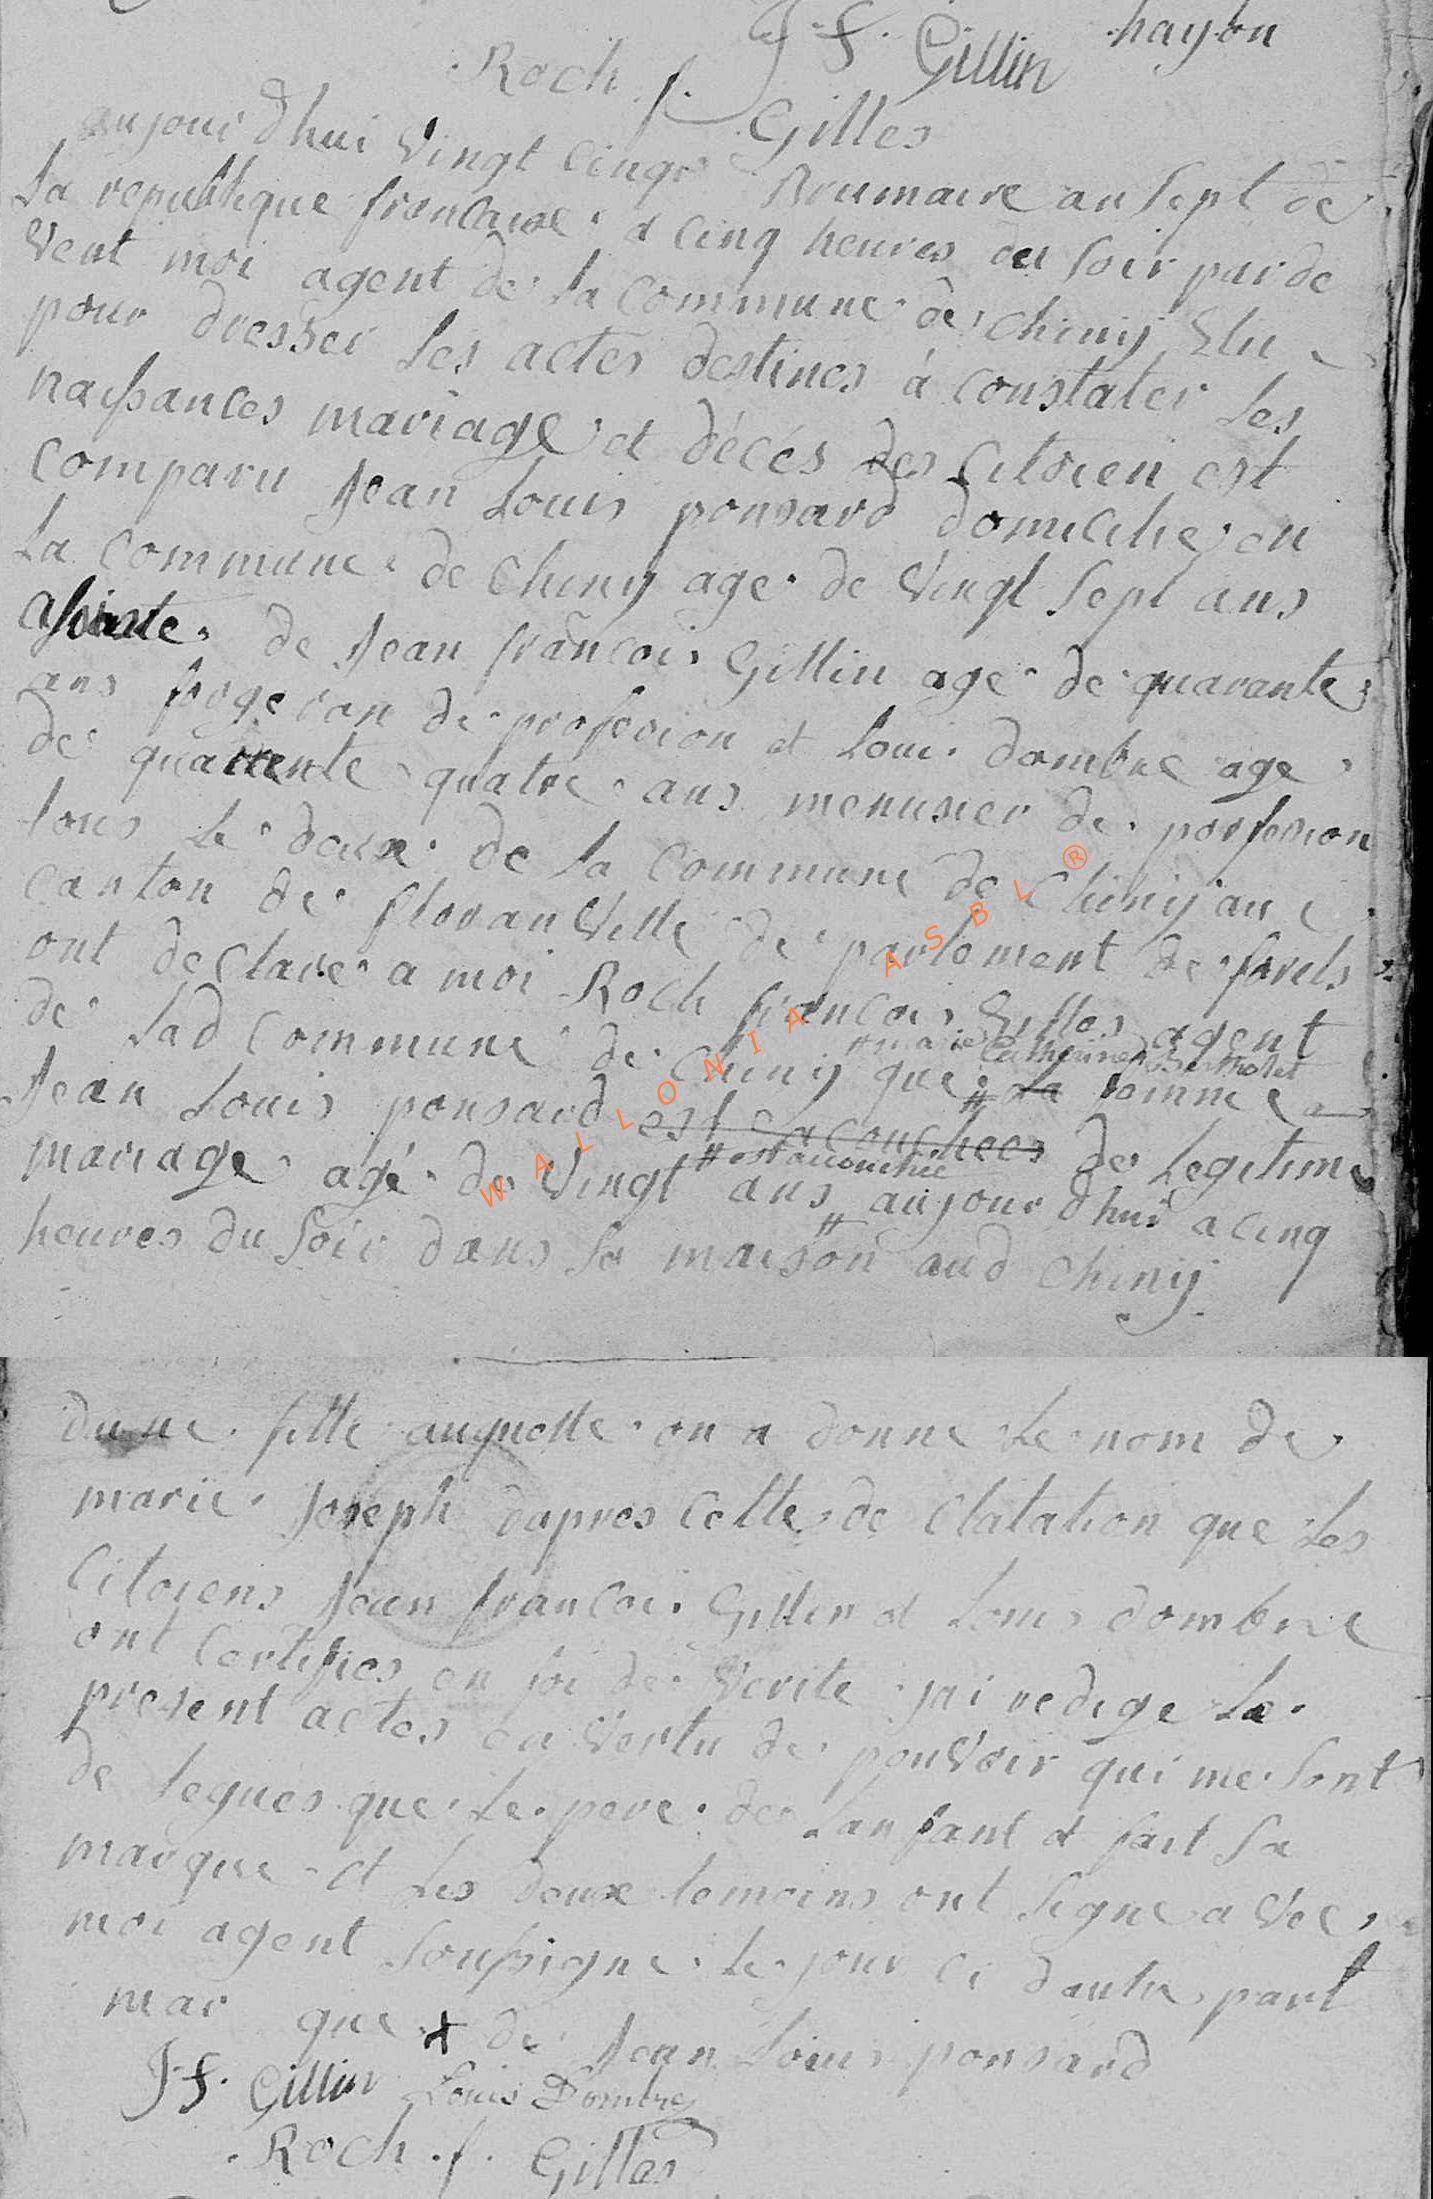 J. f. Gillin hayon
Roch f. Gilles
aujour dhui Vingt cinq Brumaire an Sept de
La republique francaise a cinq heures du Soir par de
Vent moi agent de La Commune de chiny Elu
pour dresser Les actes destines á constater Les
naissances mariage et décés des Citoien est
comparu Jean Louis ponsard domicilie en
La Commune de Chiny age de Vingt Sept ans
assiste de Jean francois Gillin age de quarante
ans forgeran de profesion et Louis dombre age
de quarente quatre ans menusier de porfesion
tous Le deux de La Commune de Chiny au
canton de floranville de partement de forets
ont de clare a moi Roch francois Gilles agent
de Lad Commune de Chiny que # La famme a
# marie Catherine Bertholet
Jean Louis ponsard est acouchees de Legitime
mariage agé de Vingt ans # aujour dhui a cinq
# est accouchée
heures du Soir dans Sa maison aud Chiny
dune fille auquelle on a donne Le nom de
marie Joseph dapres cette de Clatation que Les
Citoiens Jean francois Gillin et Louis dombre
ont Certifies en foi de Verite jai redige Le
present actes en Vertu de pouvoir qui me Sont
de legues que Le pere de Lanfant et fait Sa
marque et Les deux temoins ont Signe a Vec
moi agent Soussigne Le jour ci dautre part
mar que + de Jean Louis ponsard
J f. Gillin Louis Dombre
Roch f. Gilles
WALLONIA ASBL ®